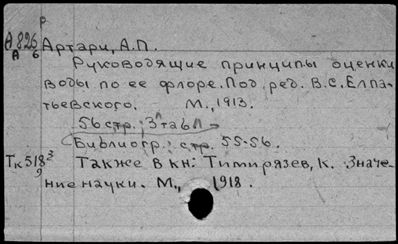 р
А 826 Артари, А.П.
А 6
Руководящие принципы оценки
воды по ее флоре. Под ред. В.С. Елпа-
тьевского. М., 1913.
56 стр.; 3 табл
Библиогр.: стр. 55-56.
Тк 518 3/9 Также в кн: Тимирязев, К. Значе-
ние науки. М., 1918.